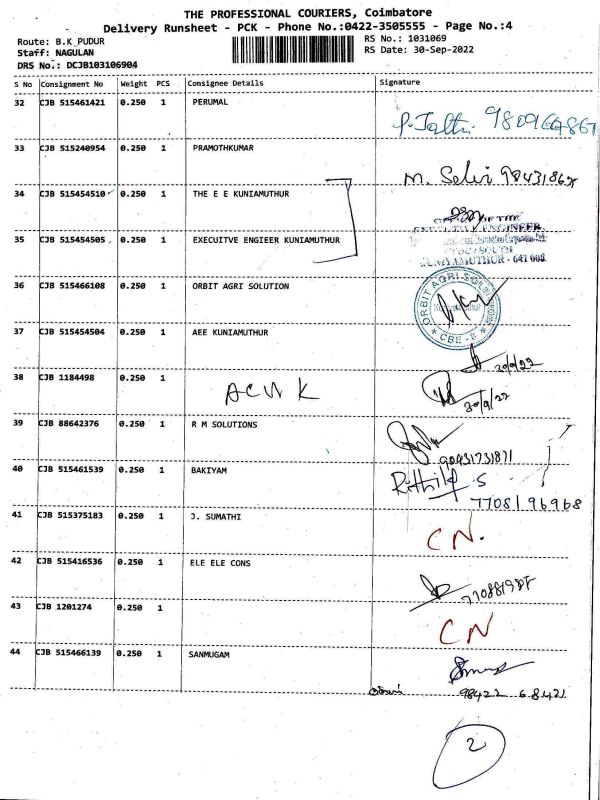 THE PROFESSIONAL COURIERS, Coimbatore
Delivery Runsheet - PCK - Phone No.:0422-3505555 - Page No.:4
Route: B.K PUDUR
RS No.: 1031069
Staff: NAGULAN
RS Date: 30-Sep-2022
DRS No.: DCJB103106904
S No Consignment No Weight PCS Consignee Details Signature
32 CJB 515461421 0.250 1 PERUMAL
33 CJB 515240954 0.250 1 PRAMOTHKUMAR
M. Selvi
34 CJB 515454510 0.250 1 THE E E KUNIAMUTHUR
OFFICE OF THE
EXECUTIVE ENGINEER
35 CJB 515454505 0.250 1 EXECUITVE ENGIEER KUNIAMUTHUR
KUNIAMUTHUR - 641 008
36 CJB 515466108 0.250 1 ORBIT AGRI SOLUTION
ORBIT AGRI SOLUTION
CBE - 8
37 CJB 515454504 0.250 1 AEE KUNIAMUTHUR
30/9/22
38 CJB 1184498 0.250 1
30/9/22
39 CJB 88642376 0.250 1 R M SOLUTIONS
90431731871
40 CJB 515461539 0.250 1 BAKIYAM
S
7708196968
41 CJB 515375183 0.250 1 J. SUMATHI CN.
42 CJB 515416536 0.250 1 ELE ELE CONS
43 CJB 1201274 0.250 1 CN
44 CJB 515466139 0.250 1 SANMUGAM
98422 68421
2